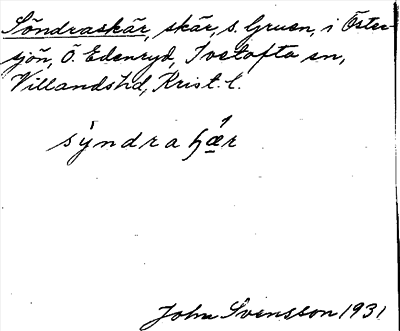 Söndraskär, skär, s. Gruen, i Öster-
sjön, Ö. Edenryd, Ivetofta sn,
Villands hd, Krist. l.
sỳndra ʃǽr
John Svensson 1931